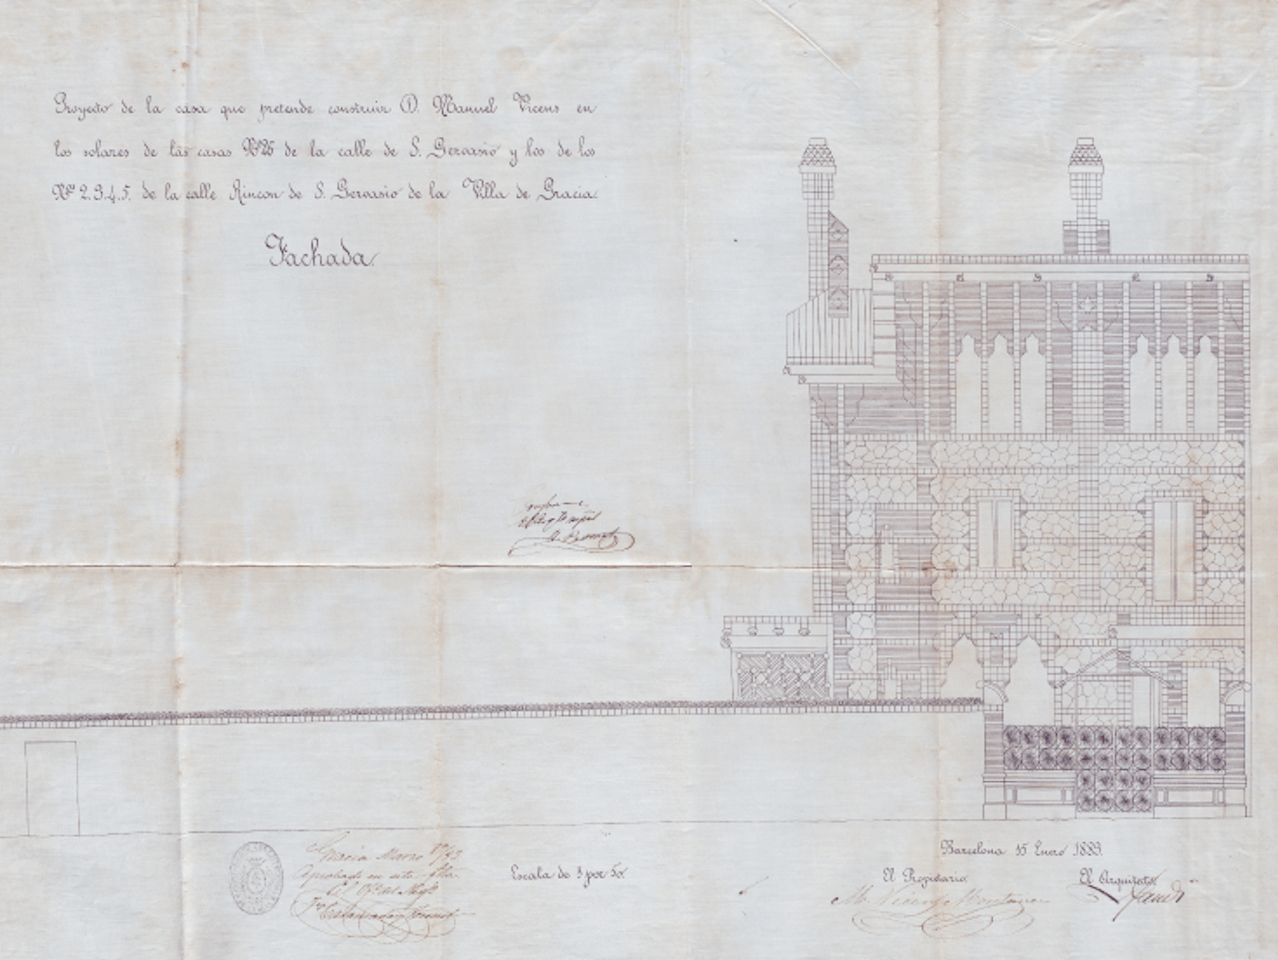 Proyecto de la casa que pretende construir D. Manuel Vicens en
los solares de las casas Nº 26 de la calle de S. Gervasio y los de los
Nº 2.3.4.5. de la calle Rincon de S. Gervasio de la Villa de Gracia.
Fachada.
Gracia Marzo
Aprobado en este
Escala de 1 por 50.
Barcelona 15 Enero 1883.
El Propietario.
El Arquitecto.
M. Vicens y Montaner
Gaudí